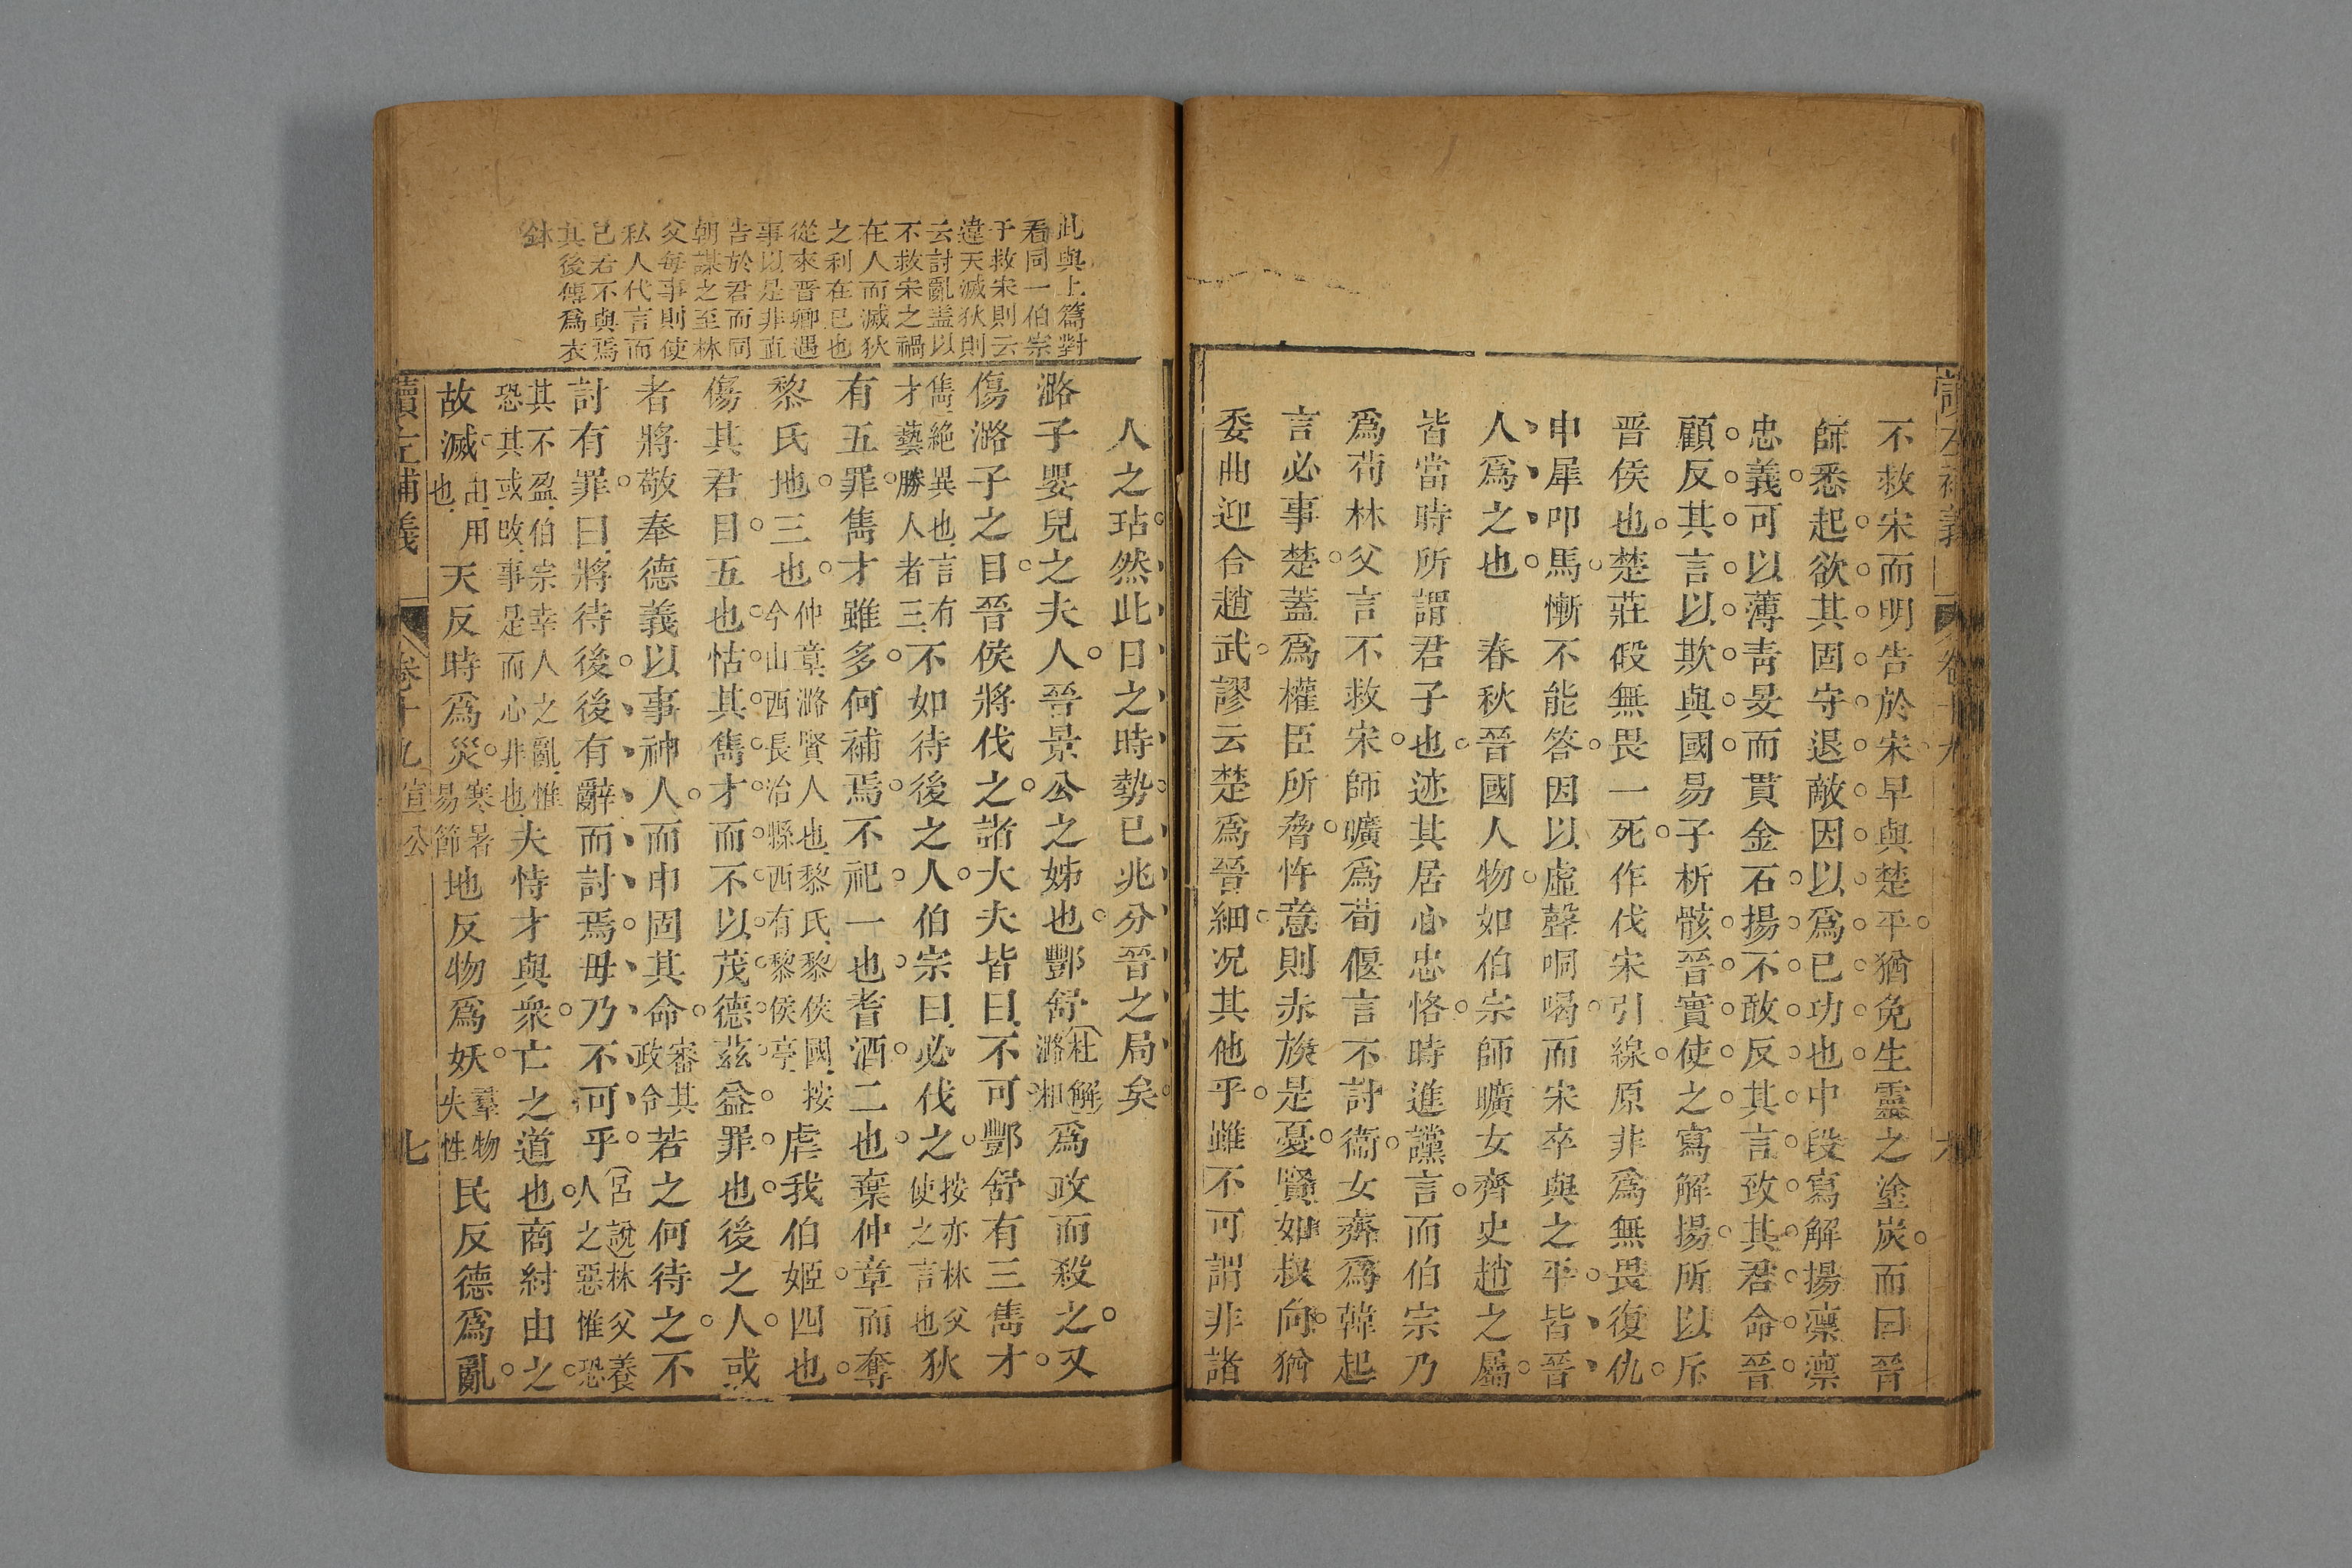 不救宋而明告於宋早與楚平猶免生靈之塗炭而曰晉
師悉起欲其固守退敵因以爲已功也中段寫解揚凛凛
忠義可以薄靑旻而貫金石揚不敢反其言致其君命晉
顧反其言以欺與國易子析骸晉實使之寫解揚所以斥
晉侯也楚莊假無畏一死作伐宋引線原非爲無畏復仇
申犀叩馬慚不能答因以虛聲哃喝而宋卒與之平皆晉
人爲之也 春秋晉國人物如伯宗師曠女齊史趙之屬
皆當時所謂君子也迹其居心忠恪時進讜言而伯宗乃
爲荀林父言不救宋師曠爲荀偃言不討衞女齊爲韓起
言必事楚蓋爲權臣所脅忤意則赤族是憂賢如叔向猶
委曲迎合趙武謬云楚爲晉細况其他乎雖不可謂非諸
人之玷然此日之時勢已兆分晉之局矣
潞子嬰兒之夫人晉景公之姊也酆舒杜解潞相爲政而殺之又
傷潞子之目晉侯將伐之諸大夫皆曰不可酆舒有三雋才
雋絶異也言有才藝勝人者三不如待後之人伯宗曰必伐之按亦林父使之言也狄
有五罪雋才雖多何補焉不祀一也耆酒二也棄仲章而奪
黎氏地三也仲章潞賢人也黎氏黎侯國按今山西長治縣西有黎侯亭虐我伯姬四也
傷其君目五也怙其雋才而不以茂德茲益罪也後之人或
者將敬奉德義以事神人而申固其命審其政令若之何待之不
討有罪曰將待後後有辭而討焉毋乃不可乎呂說林父養人之惡惟恐
其不盈伯宗幸人之亂惟恐其或改事是而心非也夫恃才與衆亡之道也商紂由之
故滅由用也天反時爲災寒暑易節地反物爲妖羣物失性民反德爲亂
讀左補義 卷十九 宣公 七
此與上篇對
看同一伯宗
予救宋則云
違天滅狄則
云討亂盖以
不救宋之禍
在人而滅狄
之利在已也
從來晉卿遇
事以是非直
告於君而同
朝謀之至林
父每事則使
私人代言而
已若不與焉
其後傳爲衣
鉢